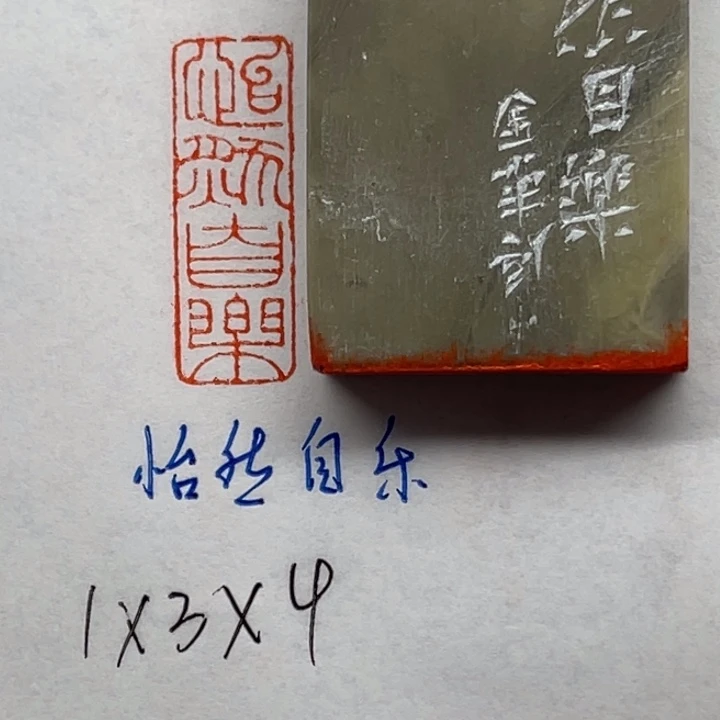 怡然自樂
然自樂
金華刻
怡然自乐
1X3X4